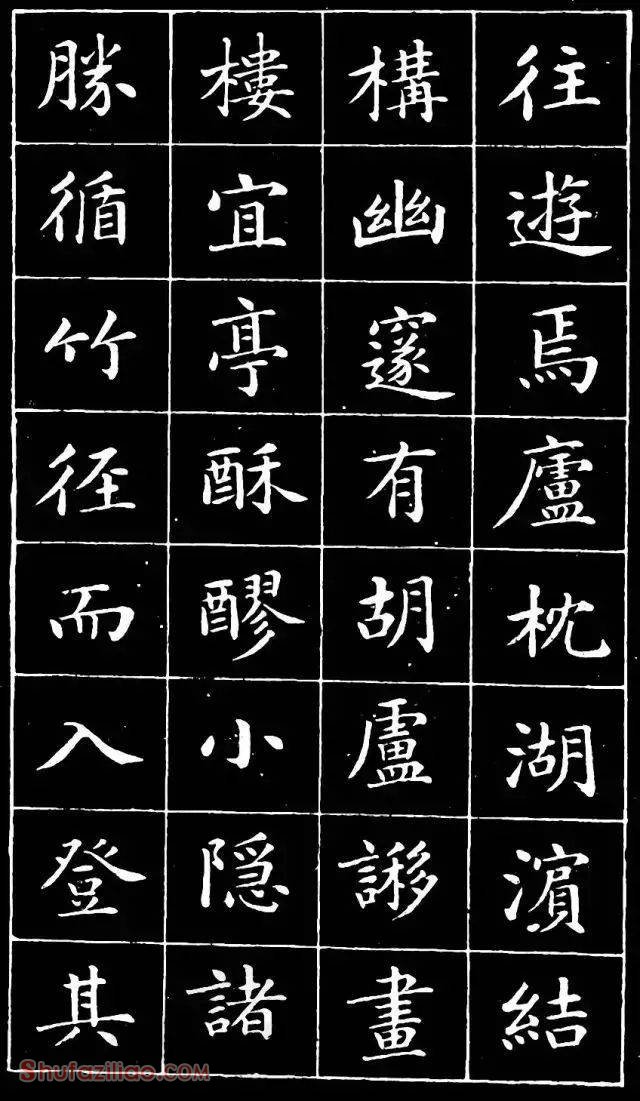 往遊焉廬枕湖濵結
構幽邃有胡盧謻畫
樓宜亭酥醪小隠諸
勝循竹径而入登其
Shufaziliao.com